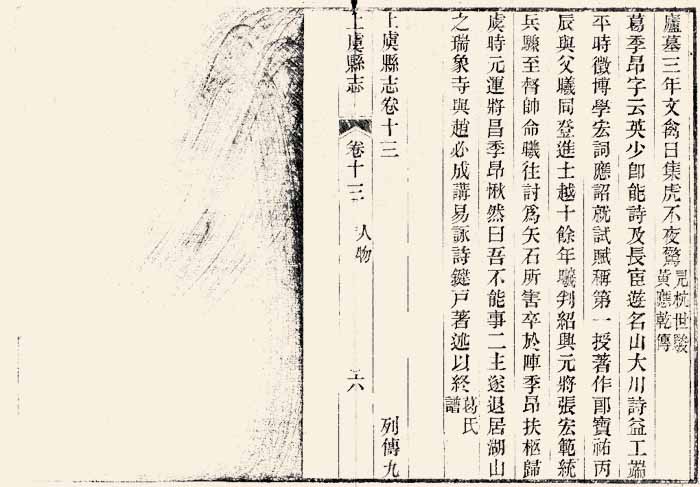 廬墓三年文禽日集虎不夜驚見杭世駿黃應乾傳
葛季昂字云英少卽能詩及長宦遊名山大川詩益工端
平時徵博學宏詞應詔就試賦稱第一授著作郞寶祐丙
辰與父曦同登進士越十餘年曦判紹興元將張宏範統
兵縣至督師命曦往討爲矢石所害卒於陣季昂扶柩歸
虞時元運將昌季昂愀然曰吾不能事二主遂退居湖山
之瑞象寺與趙必成講易詠詩鍵戶著述以終葛氏譜
上虞縣志卷十三 列傳九
上虞縣志 卷十三 人物 六